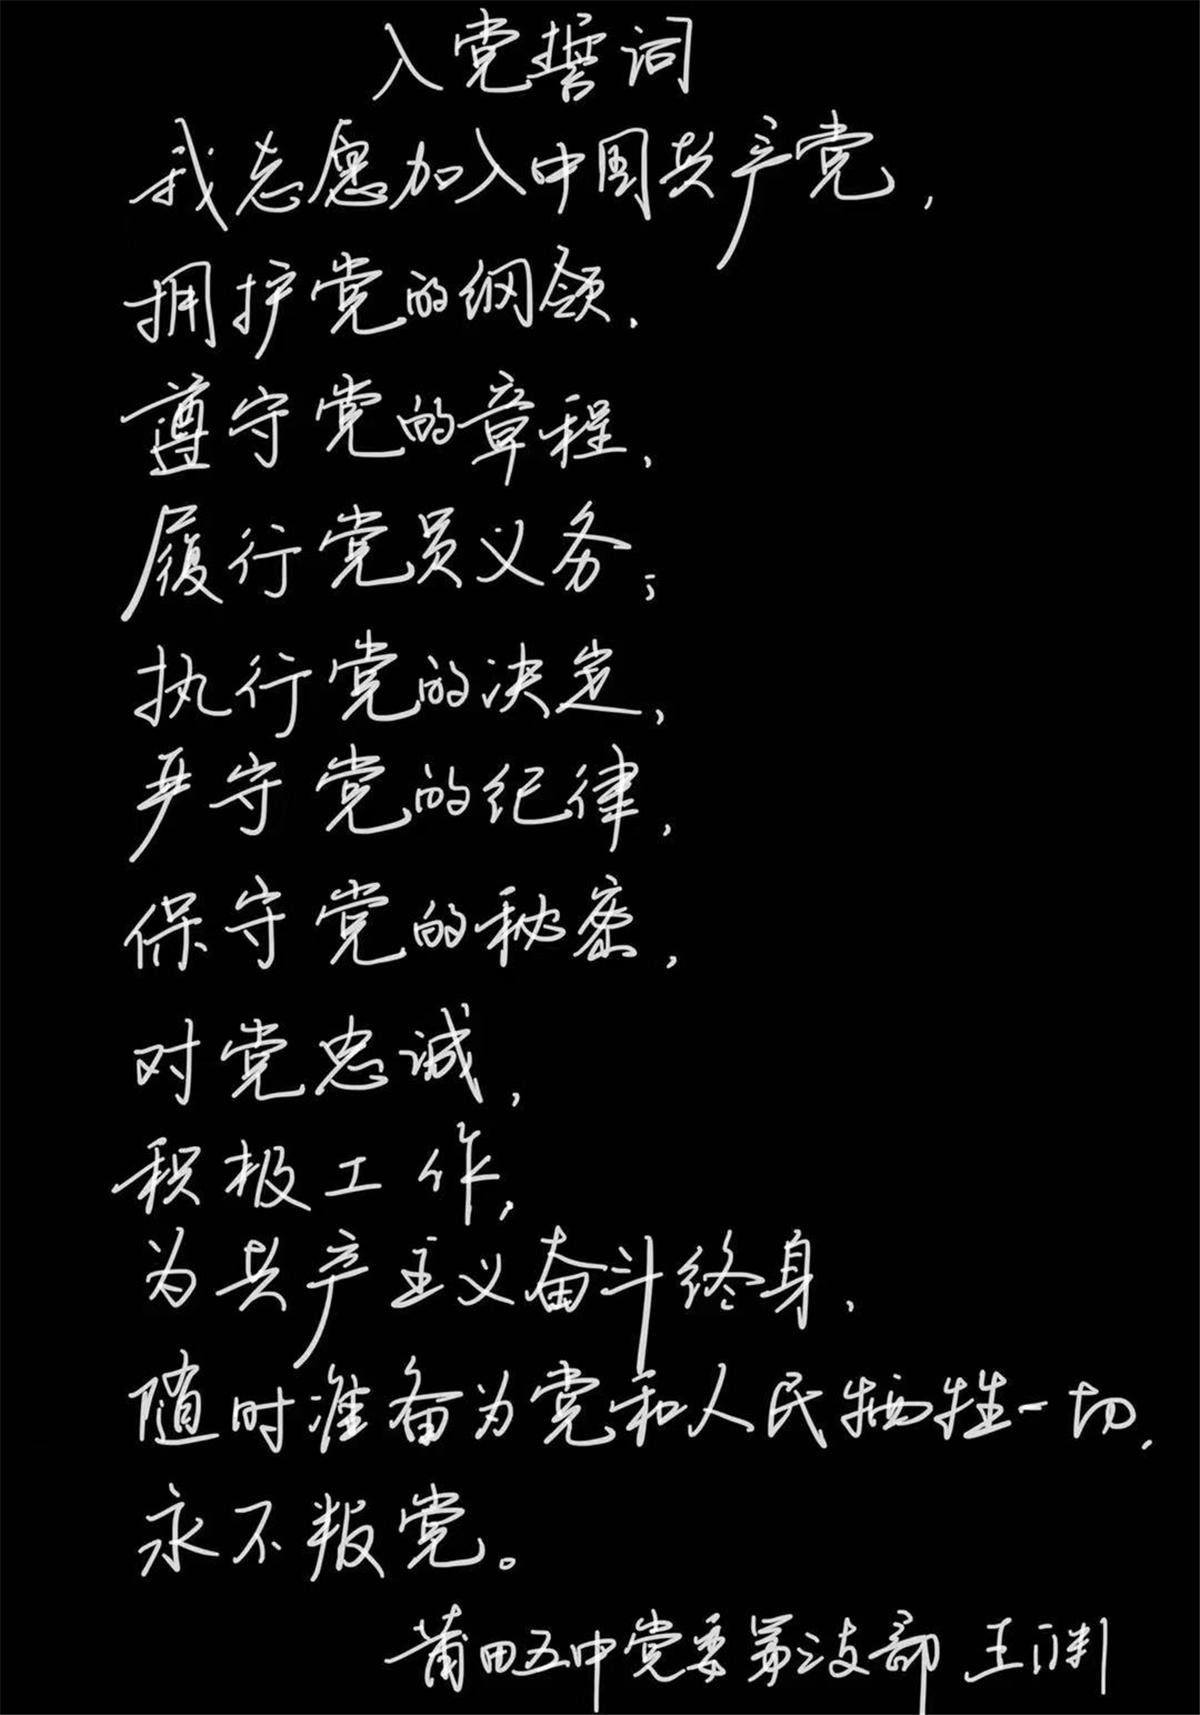 入党誓词
我志愿加入中国共产党,
拥护党的纲领,
遵守党的章程,
履行党员义务;
执行党的决定,
严守党的纪律,
保守党的秘密,
对党忠诚,
积极工作,
为共产主义奋斗终身,
随时准备为党和人民牺牲一切,
永不叛党。
莆田五中党委第二支部 王